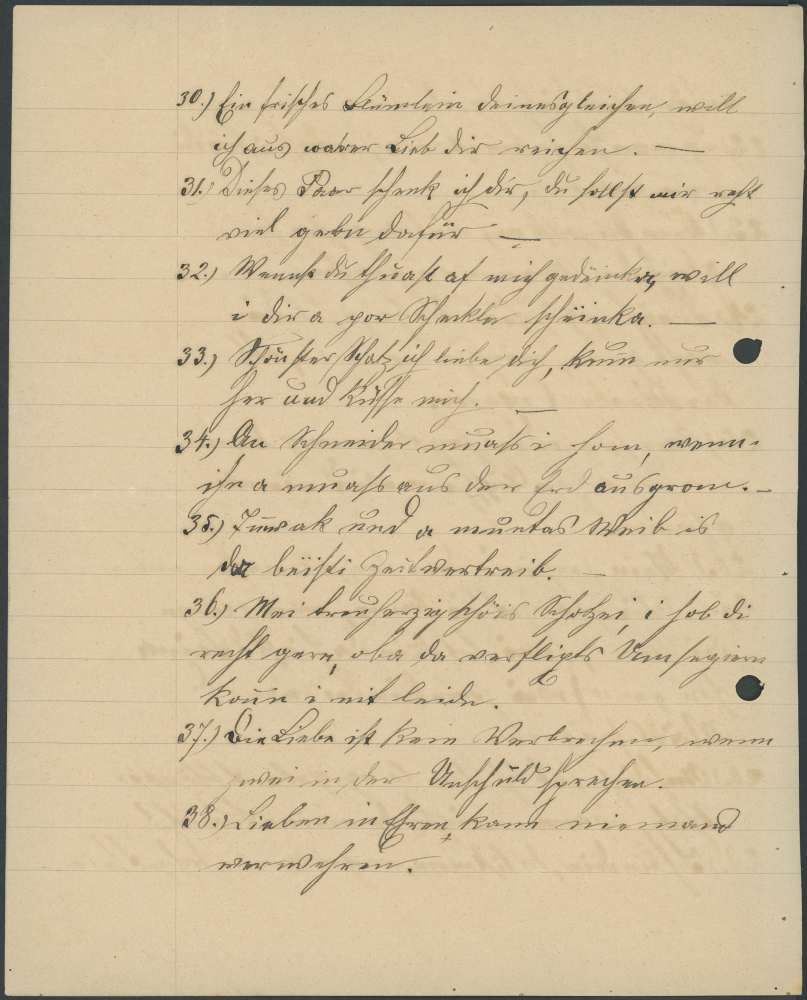 30.) Ein frisches Blümlein deinesgleichen, will
ich aus wahrer Lieb dir reichen. —
31.) Dieses Paar schenk ich dir, du sollst mir recht
viel gebn dafür —
32.) Wennst du thuast af mich gedeinka, will
i dir a por Scheckln scheinka. —
33.) Schönster Schatz ich liebe dich, kumm nur
her und küsse mich. —
34.) An Schneider muass i hom, wenn-
ihn a muass aus der Erd ausgrom. —
35.) Tuwak und a muntas Weib is
da beisti Zeitvertreib. —
36.) Mei treuherzig schöis Schotzei, i hob di
recht gern, oba da verflixts Umsegiern
kann i nit leidn.
37.) Die Liebe ist kein Verbrechen, wenn
zwei in der Unschuld sprechen.
38.) Lieben in Ehren, kann niemand
verwehren.